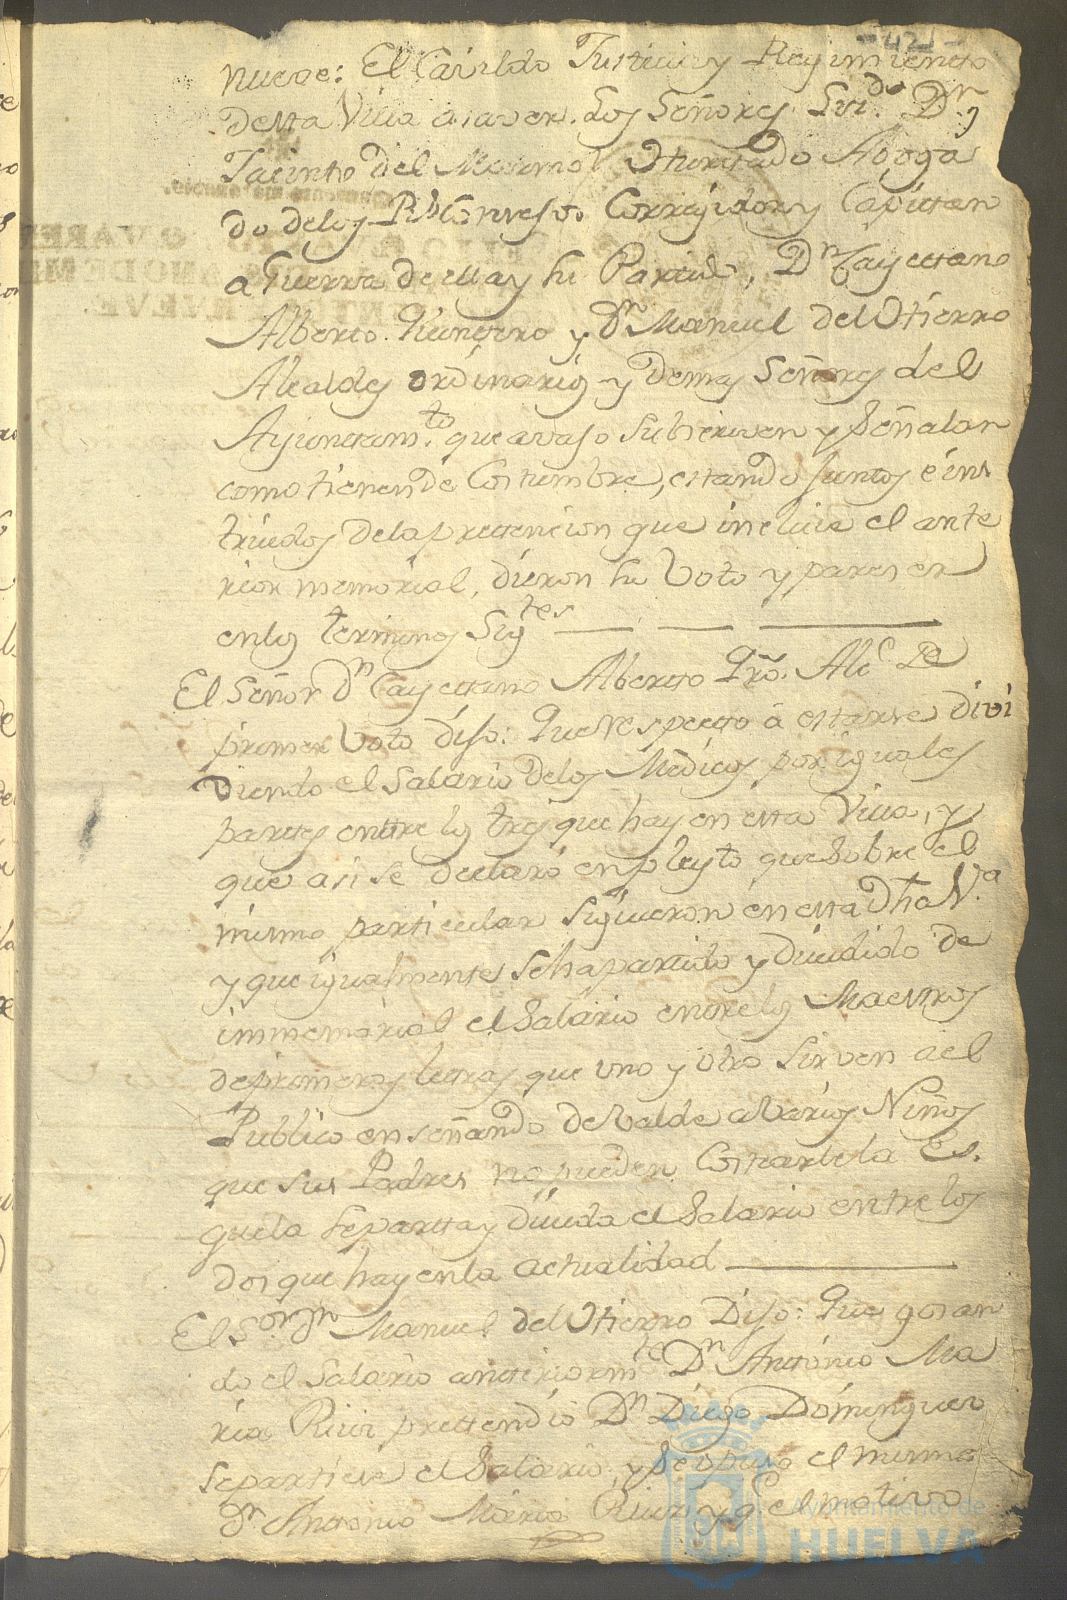 - 421 -
nueve: El Cavildo Justicia y Regimiento
desta Villa a saver. Los Señores Lizdo. Dn.
Jacinto del Moreno Hurtado Aboga
do de los Rs. Consexos Corregidor y Capitan
a Guerra de ella y su Partido, Dn. Cayettano
Alberto Quintero y Dn. Manuel del Utierro
Alcaldes ordinarios y demas Señores del
Ayunttamto. que avajo subscriven y señalan
como tienen de Costumbre, estando juntos é ins
truidos de la prettencion que incluie el ante
rior memorial, dieron su Voto y parecer
en los terminos Sigtes
El Señor Dn. Cayettano Alberto Qro. Alce. De
primer Voto dijo: Que respecto â estarse divi
diendo el Salario de los Medicos por iguales
partes enttre los tres que hay en esta Villa, y
que asi se declaró en pleyto que sobre el
mismo particular siguieron en esta Dha Va.
y que igualmente se ha partido y dividido de
immemorial el Salario entre los Maestros
de primeras letras que uno y otro sirven a el
Publico enseñando de valde a Varios Niños
que sus Padres no pueden Costearle la Es.
quela se parta y divida el Salario entre los
dos que hay en la actualidad
El Sor. Dn. Manuel del Utierro Dijo: Que gosan
do el Salario anteriormte. Dn. Antonio Ma
ria Ruiz prettendio Dn. Diego Dominguez
se partiese el Salario, y se opuso el mismo
Dn. Antonio Maria Ruiz y qe. el motivo
Ayuntamiento de
HUELVA